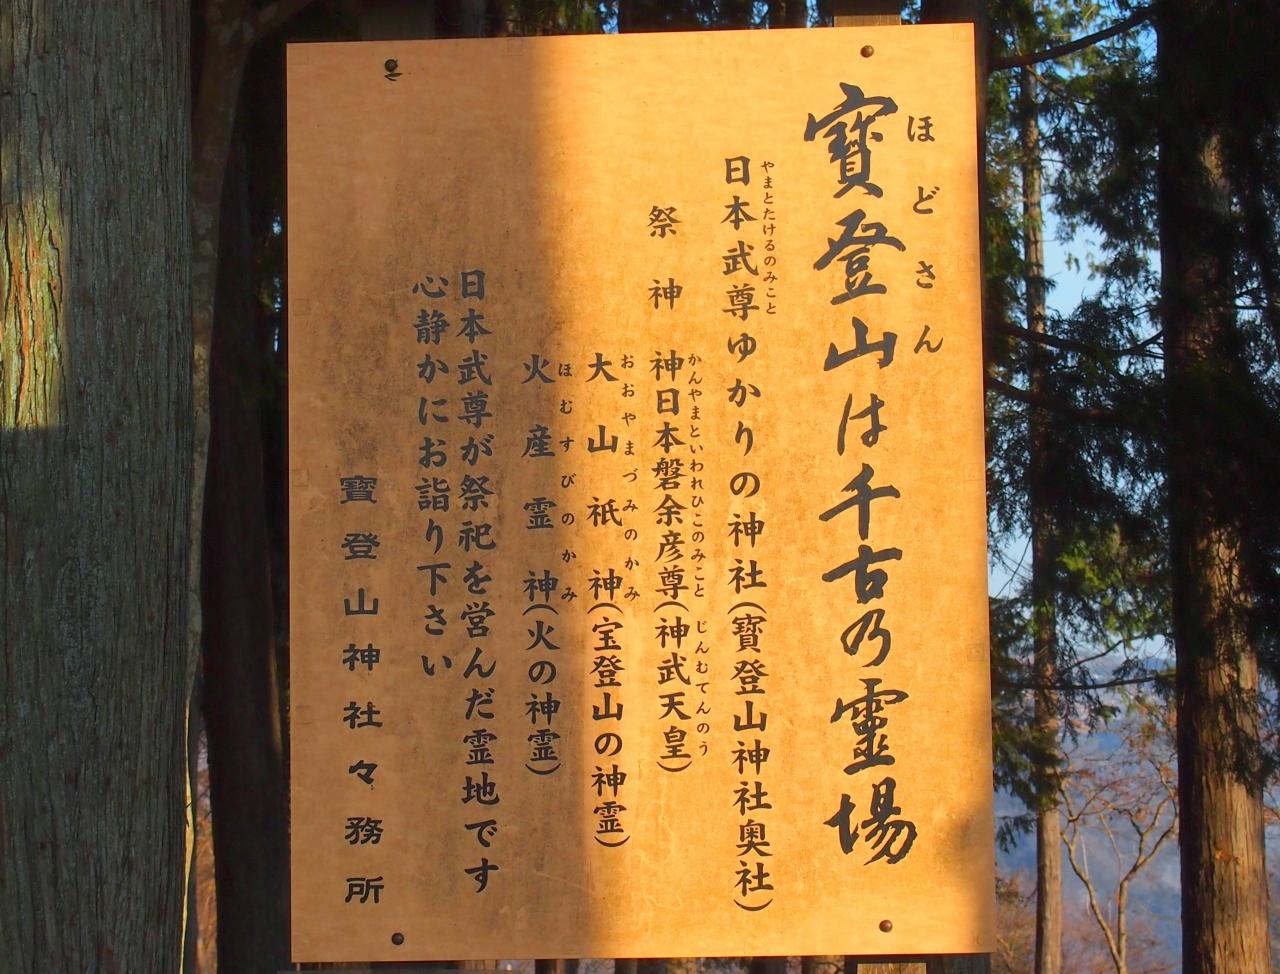 寶登山は千古乃靈場
ほどさん
日本武尊ゆかりの神社（寶登山神社奥社）
やまとたけるのみこと
祭神 神日本磐余彦尊（神武天皇）
かんやまといわれひこのみこと じんむてんのう
大山祇神（宝登山の神霊）
おおやまづみのかみ
火産霊神（火の神霊）
ほむすびのかみ
日本武尊が祭祀を営んだ霊地です
心静かにお詣り下さい
寶登山神社々務所